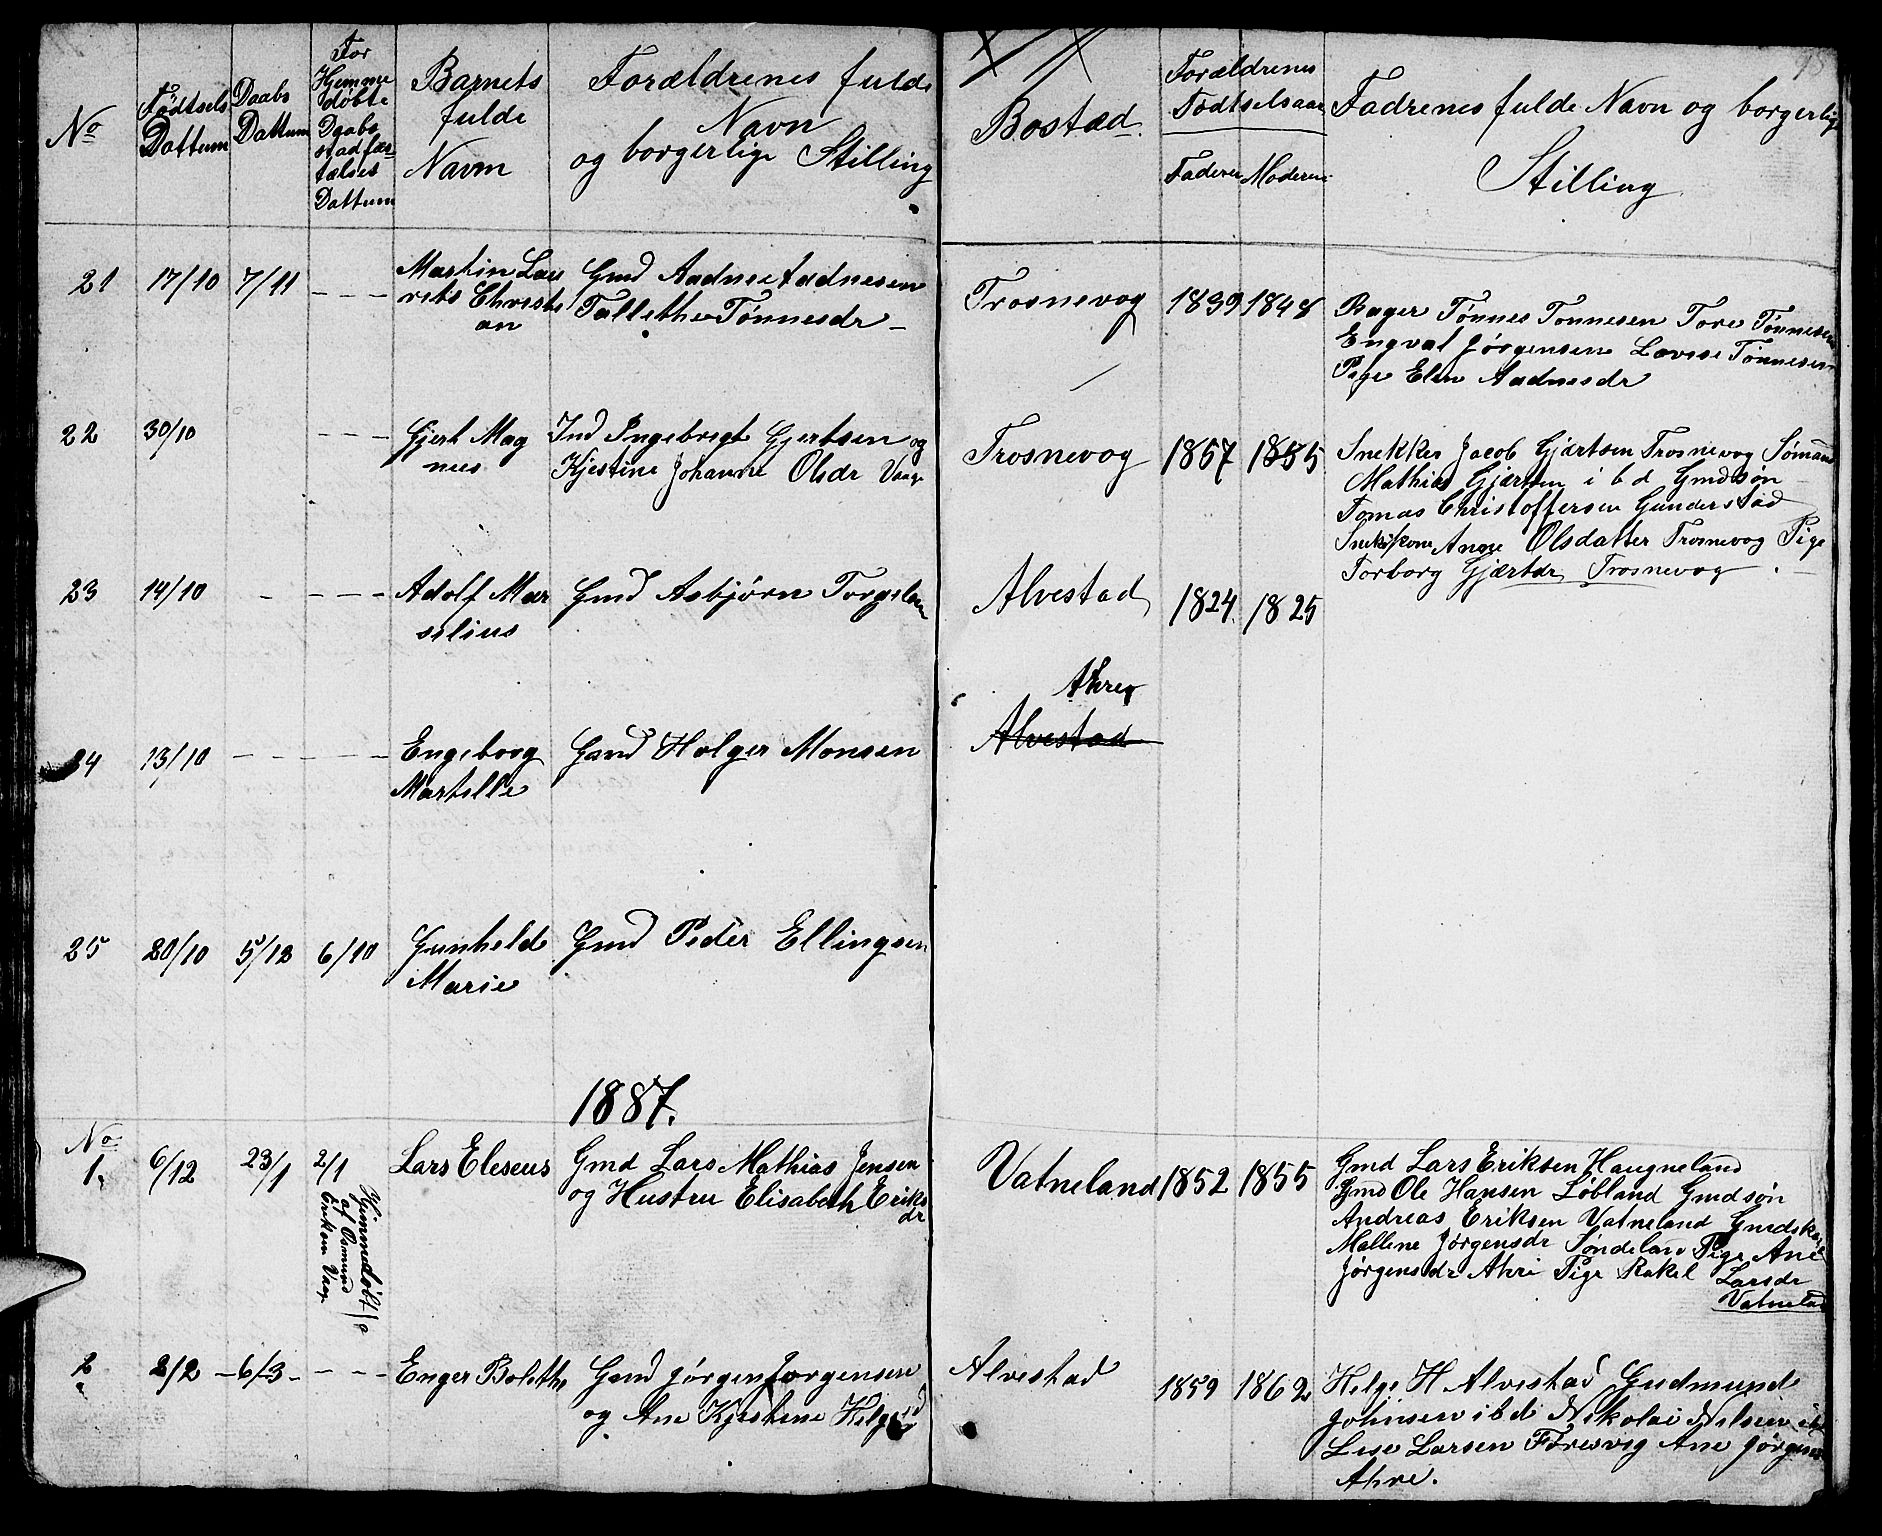 No
Födtsels
Dattum
Daabs
Dattum
For
Hjemme
döbte
Daabs
stadfæ-
telses
Dattum
Barnets
fulde
Navn
Forældrenes fulde
Navn
og borgerlige Stilling
Bostæd.
Forældrenes
Födtselsaar
Faderen Moderen
Fadrenes fulde Navn og borgerlige
Stilling
21 17/10 7/11 - - -
Martin Lau
rits Christi
an
Gmd Aadne Aadnesen
Tallethe Tönnesdr -
Trosnevog 1839 1848
Bager Tönnes Tonnesen Tore Tönnesen
Engval Jörgensen Lovise Tönnesen
Pige Elen Aadnesdr
22 30/10 - - -
Gjert Mag
nus
Ind Ingebregt Gjertsen og
Kjestine Johanne Olsdr Vaage
Trosnevog 1857 1855
Snekker Jacob Gjærtsen Trosnevog Sömand
Mathias Gjærtsen i b d Gmdsön
Tomas Christoffersen Gunderstad
Anne Olsdatter Trosnevog Pige
Torborg Gjærtdr Trosnevog .
23 14/10 - - - -
Adolf Mar
selius
Gmd Asbjörn Torgelsen
Alvestad 1824. 1825
24 13/10 - - - -
Engeborg
Martelle
Gmd Holger Monsen
Ahre
Alvestad
25 20/10 5/12 6/10
Gunhelde
Marie
Gmd Peder Ellingsen
1887.
No
1. 6/12 23/1 2/1
Hjemmedöbt
af Osmund
Eriksen Vaage
Lars Eleseus
Gmd Lars Mathias Jensen
og Hustru Elisabeth Eriks
dr
Vatneland 1852 1855
Gmd Lars Eriksen Haugneland
Gmd Ole Hansen Löbland Gmdsön
Andreas Eriksen Vatneland Gmdsk
Mallene Jørgensdr Søndeland Pige Ane
Jørgensdr Ahre Pige Rakel Larsdr
Vatneland
2 2/2 - 6/3 - - - -
Enger Bolethe
Gmd Jörgen Jorgensen
og Ane Kjestine Helgesd
Alvestad 1859 1862
Helge H Alvestad Gudmund
Johnsen ibd Nikolai Nilsen ibd
Lese Larsen Föresvig Ane Jörgens
Ahre.